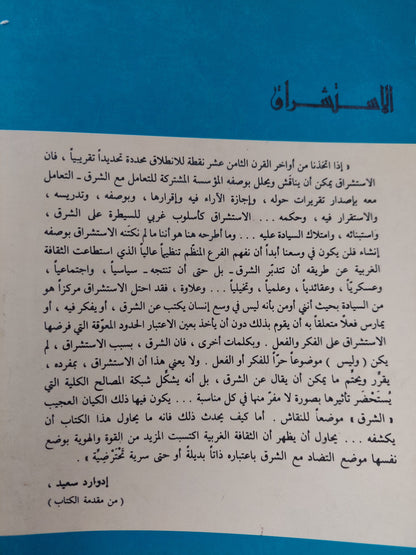 الاستشراق
« إذا اتخذنا من أواخر القرن الثامن عشر نقطة للانطلاق محددة تحديداً تقريبياً ، فان
الاستشراق يمكن أن يناقش ويحلل بوصفه المؤسسة المشتركة للتعامل مع الشرق ــ التعامل
معه بإصدار تقريرات حوله ، وإجازة الآراء فيه وإقرارها ، وبوصفه ، وتدريسه ،
والاستقرار فيه ، وحكمه ... الاستشراق كأسلوب غربي للسيطرة على الشرق ،
واستبنائه ، وامتلاك السيادة عليه ... وما أطرحه هنا هو أننا ما لم نكتنه الاستشراق بوصفه
إنشاء فلن يكون في وسعنا أبداً أن نفهم الفرع المنظّم تنظيماً عالياً الذي استطاعت الثقافة
الغربية عن طريقه أن تتدبّر الشرق ــ بل حتى أن تنتجه ــ سياسياً ، واجتماعياً ،
وعسكرياً ، وعقائدياً ، وعلمياً ، وتخيلياً ... وعلاوة ، فقد احتل الاستشراق مركزاً هو
من السيادة بحيث أنني أومن بأنه ليس في وسع إنسان يكتب عن الشرق ، أو يفكر فيه ، أو
يمارس فعلًا متعلقاً به أن يقوم بذلك دون أن يأخذ بعين الاعتبار الحدود المعوّقة التي فرضها
الاستشراق على الفكر والفعل . وبكلمات أخرى ، فان الشرق ، بسبب الاستشراق ، لم
يكن ( وليس ) موضوعاً حرّاً للفكر أو الفعل . ولا يعني هذا أن الاستشراق ، بمفرده ،
يقرّر ويحتّم ما يمكن أن يقال عن الشرق ، بل أنه يشكّل شبكة المصالح الكلية التي
يُسْتَحْضَر تأثيرها بصورة لا مفرّ منها في كل مناسبة ... يكون فيها ذلك الكيان العجيب
« الشرق » موضعاً للنقاش . أما كيف يحدث ذلك فانه ما يحاول هذا الكتاب أن
يكشفه ... يحاول أن يظهر أن الثقافة الغربية اكتسبت المزيد من القوة والهوية بوضع
نفسها موضع التضاد مع الشرق باعتباره ذاتاً بديلةً أو حتى سرية تَحْتَرْضِيّة » .
إدوارد سعيد ،
( من مقدمة الكتاب )